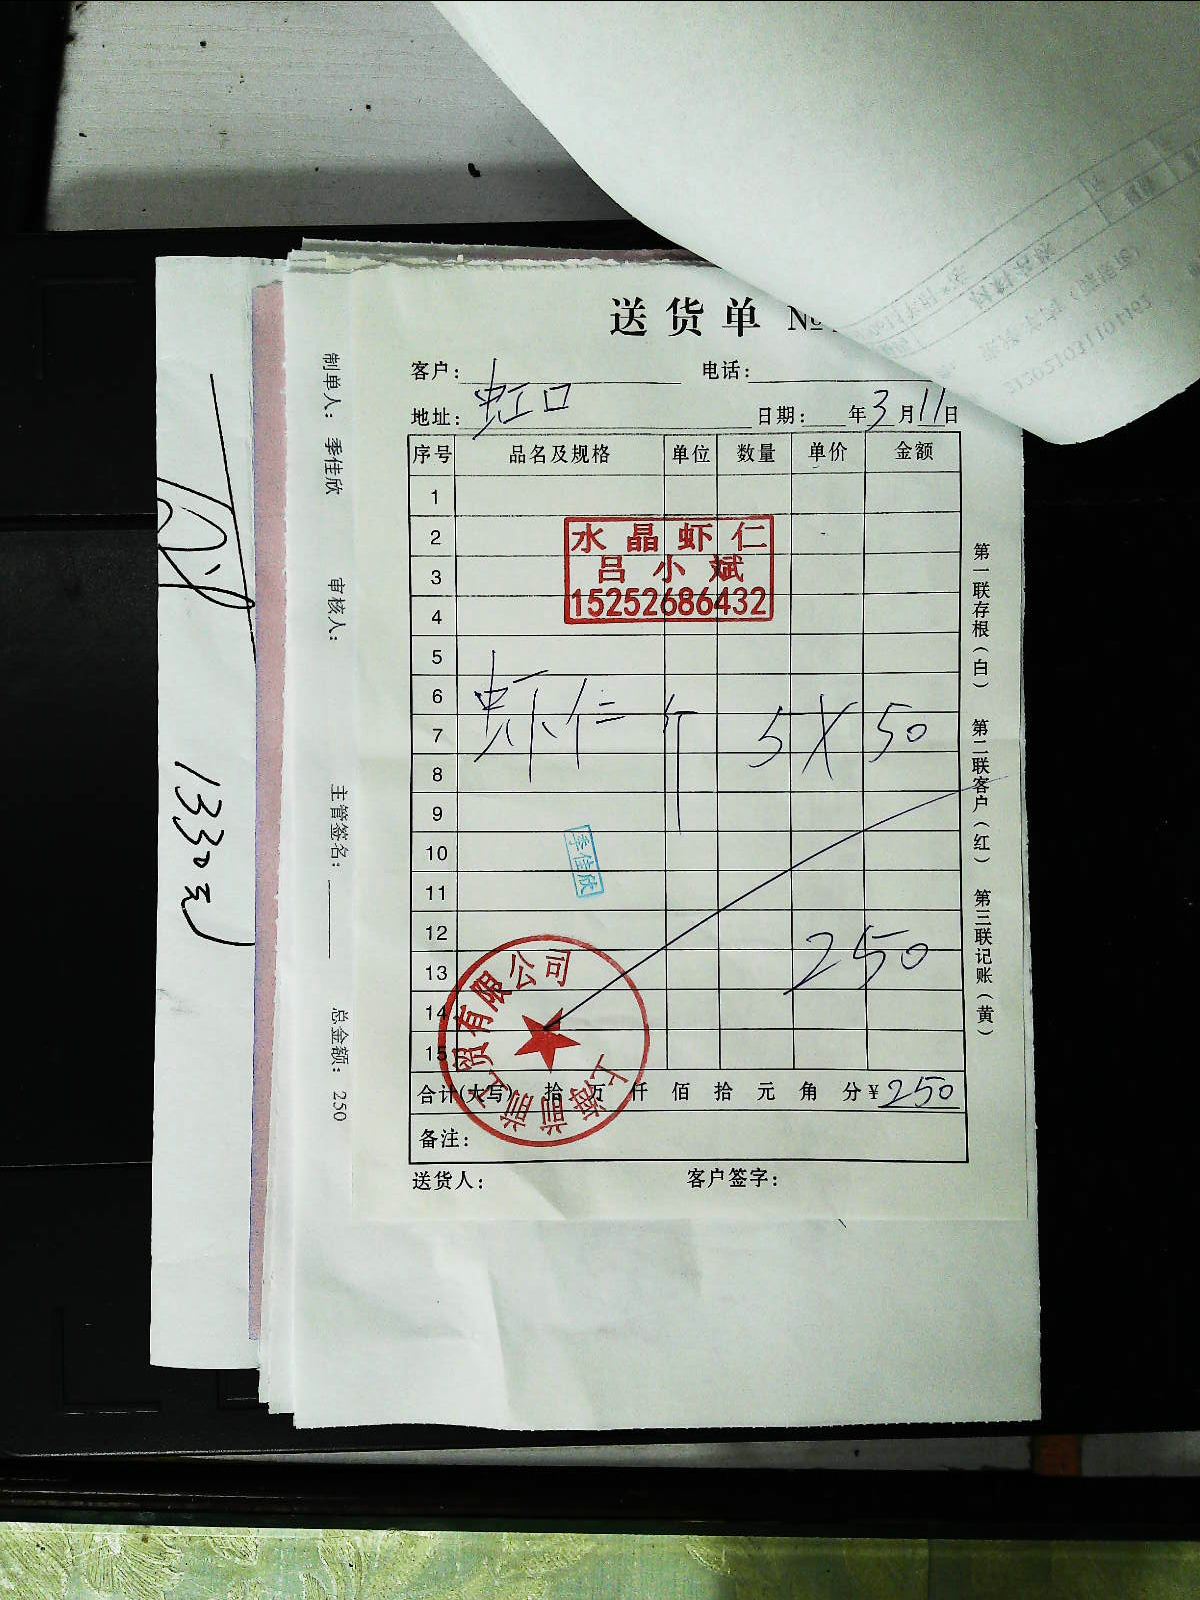 送货单 №
客户：
电话：
地址：虹口
日期： 年3月11日
序号 品名及规格 单位 数量 单价 金额
1
2
3
4
5
6
7
8
9
10
11
12
13
14
15
水晶虾仁
吕小斌
15252686432
虾仁 斤 5 X 50
季佳欣
250
合计(大写) 拾 万 仟 佰 拾 元 角 分 ¥250
备注：
送货人：
客户签字：
第一联存根（白） 第二联客户（红） 第三联记账（黄）
上海前前工贸有限公司
制单人： 季佳欣 审核人： 主管签名： 总金额： 250
1330元